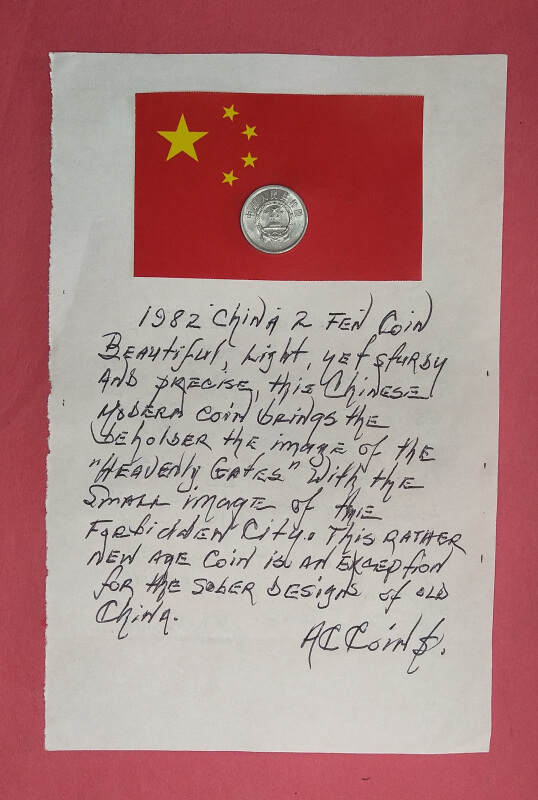 中华人民共和国
1982 China 2 Fen Coin
Beautiful, Light, yet sturdy
and precise, this Chinese
modern coin brings the
beholder the image of the
"Heavenly Gates" with the
small image of the
Forbidden City. This rather
new age coin is an exception
for the sober designs of old
China.
AC Coin $.